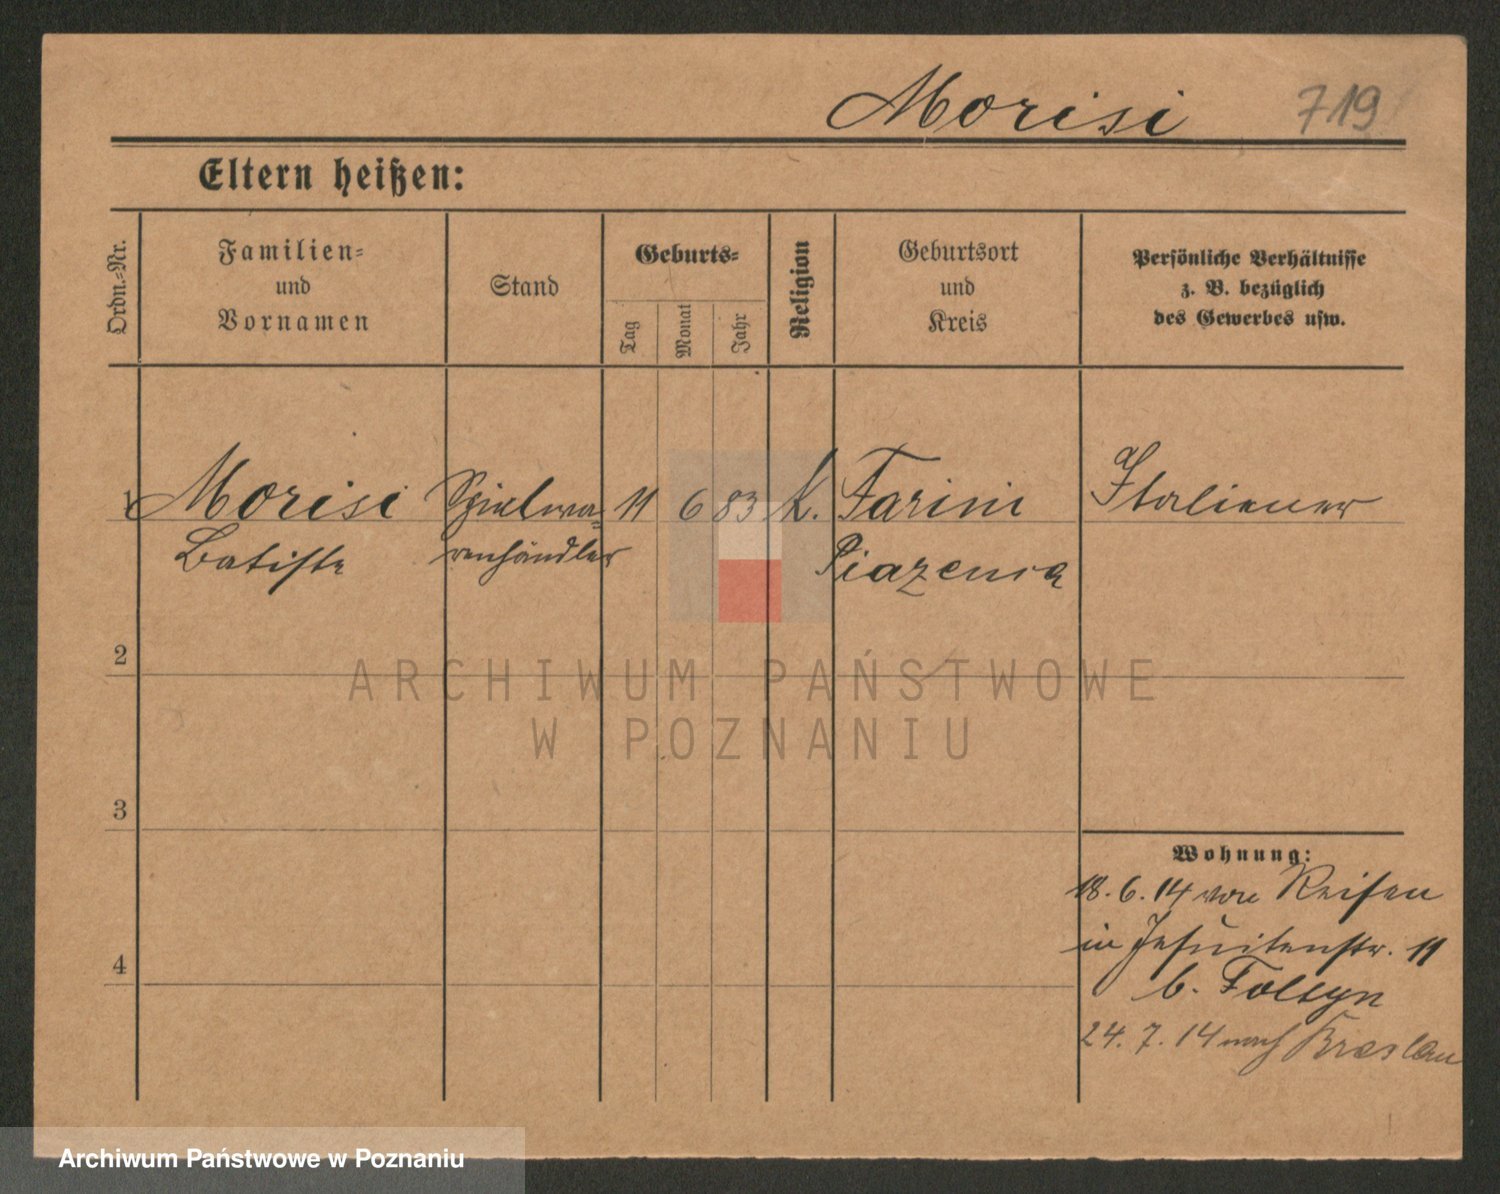 Morisi 719
Eltern heißen:
Ordn.-Nr.
Familien-
und
Vornamen
Stand
Geburts-
Tag
Monat
Jahr
Religion
Geburtsort
und
Kreis
Persönliche Verhältnisse
z. B. bezüglich
des Gewerbes usw.
1 Morisi Spielwa= 11 6 83 K. Farini Italiener
Batiste renhändler Piazenza
2
ARCHIWUM PAŃSTWOWE
W POZNANIU
3
Wohnung:
18. 6. 14 von Reisen
in Jesuitenstr. 11
4
b. Foltyn
24. 7. 14 nach Breslau
Archiwum Państwowe w Poznaniu